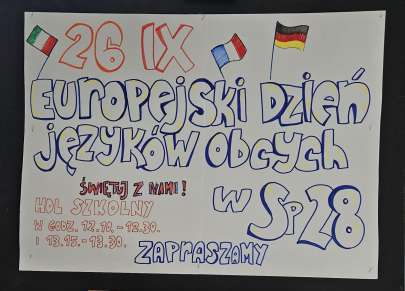 26 IX
EUROPEJSKI DZIEŃ
JĘZYKÓW OBCYCH
W SP28
ŚWIĘTUJ Z NAMI!
HOL SZKOLNY
W GODZ. 12.10.-12.30.
I 13.15.-13.30.
ZAPRASZAMY